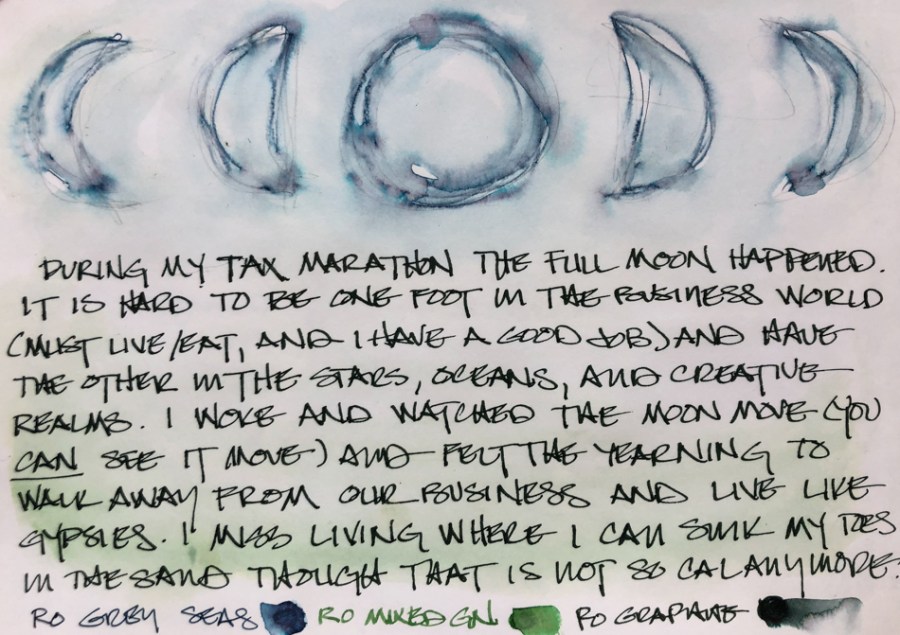 DURING MY TAX MARATHON THE FULL MOON HAPPENED.
IT IS HARD TO BE ONE FOOT IN THE BUSINESS WORLD
(MUST LIVE/EAT, AND I HAVE A GOOD JOB) AND HAVE
THE OTHER IN THE STARS, OCEANS, AND CREATIVE
REALMS. I WOKE AND WATCHED THE MOON MOVE (YOU
CAN SEE IT MOVE) AND FELT THE YEARNING TO
WALK AWAY FROM OUR BUSINESS AND LIVE LIKE
GYPSIES. I MISS LIVING WHERE I CAN SINK MY TOES
IN THE SAND THOUGH THAT IS NOT SO CAL ANYMORE.
RO GREY SEAS RO MIXED GN. RO GRAPHITE